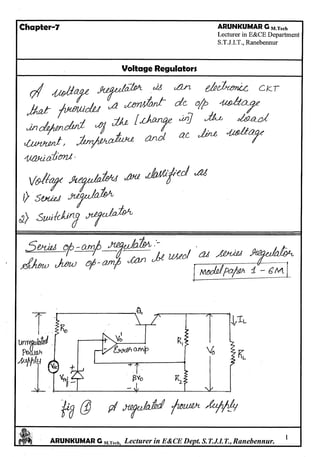 Chapter-7
ARUNKUMAR G M.Tech
Lecturer in E&CE Department
S.T.J.I.T., Ranebennur
Voltage Regulators
A voltage regulator is an electronic CKT
that provides a constant dc o/p voltage
independent of the [change in] the load
current, temperature and ac line voltage
variations.
Voltage regulators are classified as
1) Series regulator
2) Switching regulator
Series op-amp regulator:-
Show how op-amp can be used as series regulator
Model paper 1 - 6M
Q1
IL
Unregulated
Power
supply
R0
V0'
Error amp
R1
V0
RL
Vref
βV0
R2
fig ① A regulated power supply
ARUNKUMAR G M.Tech, Lecturer in E&CE Dept. S.T.J.I.T., Ranebennur.
1